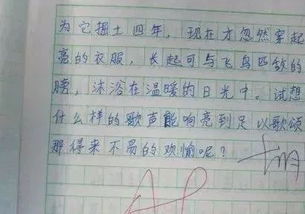 为它掘土四年，现在才忽然穿起
亮的衣服，长起可与飞鸟匹敌的
膀，沐浴在温暖的日光中。试想
什么样的歌声能响亮到足以歌颂
那得来不易的欢愉呢？